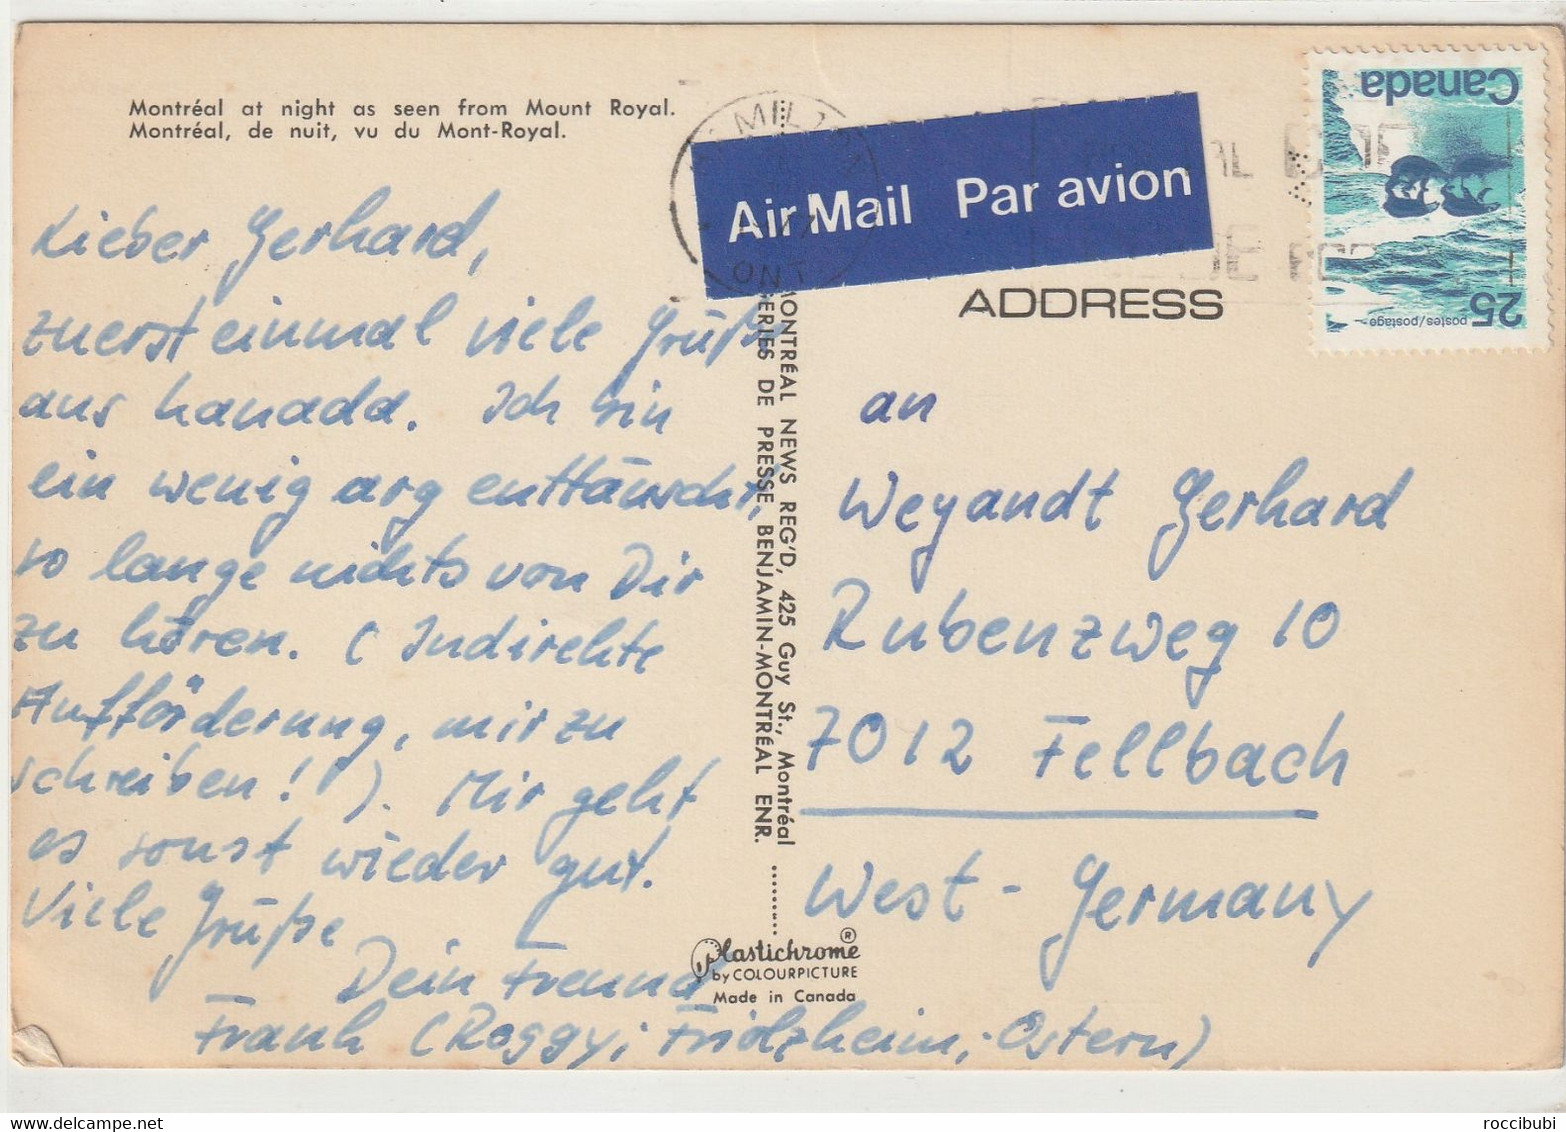 Montréal at night as seen from Mount Royal.
Montréal, de nuit, vu du Mont-Royal.
Lieber Gerhard,
zuerst einmal viele Grüße
aus Kanada. Ich bin
ein wenig arg enttäuscht,
so lange nichts von Dir
zu hören. (Indirekte
Aufförderung, mir zu
schreiben!). Mir geht
es sonst wieder gut.
Viele Grüße
Dein Freund
Frank (Roggy; Fridzheim; Ostern)
MONTRÉAL NEWS REG'D, 425 Guy St., Montréal
DE PRESSE BENJAMIN-MONTRÉAL ENR.
Plastichrome ®
by COLOURPICTURE
Made in Canada
MILTON
ONT
Air Mail Par avion
Canada
postes/postage
25
ADDRESS
an
Weyandt Gerhard
Rubenzweg 10
7012 Fellbach
West-Germany
www.delcampe.net
roccibubi